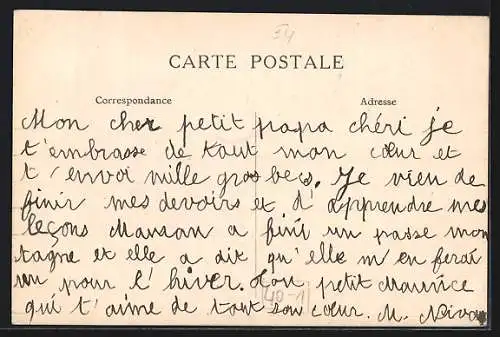 54
CARTE POSTALE
Correspondance Adresse
Mon cher petit papa chéri je
t'embrasse de tout mon cœur et
t'envoi mille gros becs. Je vien de
finir mes devoirs et d'apprendre mes
leçons Manman a fini un passe mon
tagne et elle a dit qu'elle m'en ferai
un pour l'hiver. Ton petit Maurice
40-1
qui t'aime de tout son cœur. M.